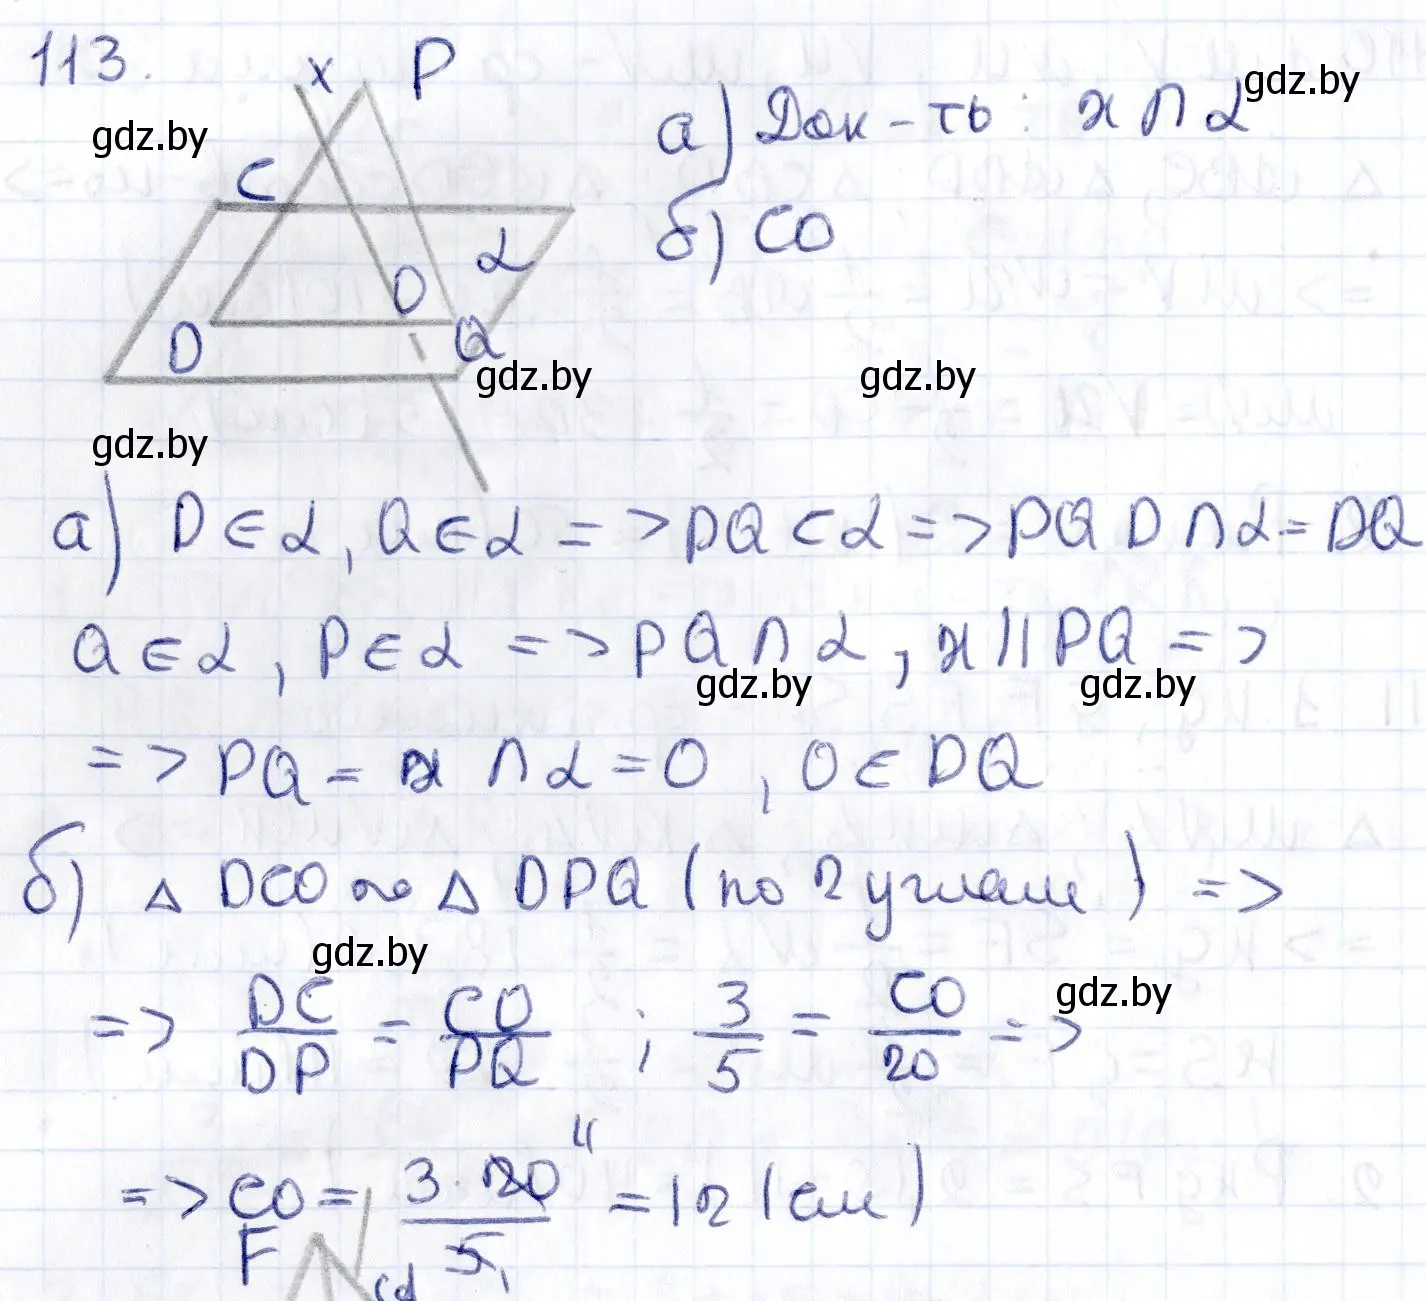 113.
x P
gdz.by
а) Док-ть: x ∩ α
gdz.by
C
б) CO
α
O
D
Q
gdz.by
gdz.by
gdz.by
а) D ∈ α, Q ∈ α => DQ ⊂ α => PQD ∩ α = DQ
Q ∈ α, P ∈ α => PQ ∩ α, x || PQ =>
gdz.by
gdz.by
=> PQ = x ∩ α = O, O ∈ DQ
б) △ DCO ∾ △ DPQ (по 2 углам) =>
gdz.by
gdz.by
=> DC/DP = CO/PQ ; 3/5 = CO/20 =>
=> CO = 3·20/5 = 12 (см)
4
1
F